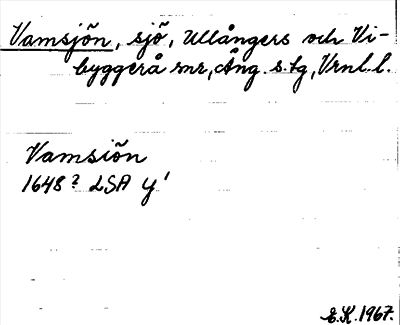 Vamsjön, sjö, Ullångers och Vi-
byggerå snr, Ång. s. tg, Vrnl. l.
Vamsiön
1648? LSA Y'
E.K. 1967.